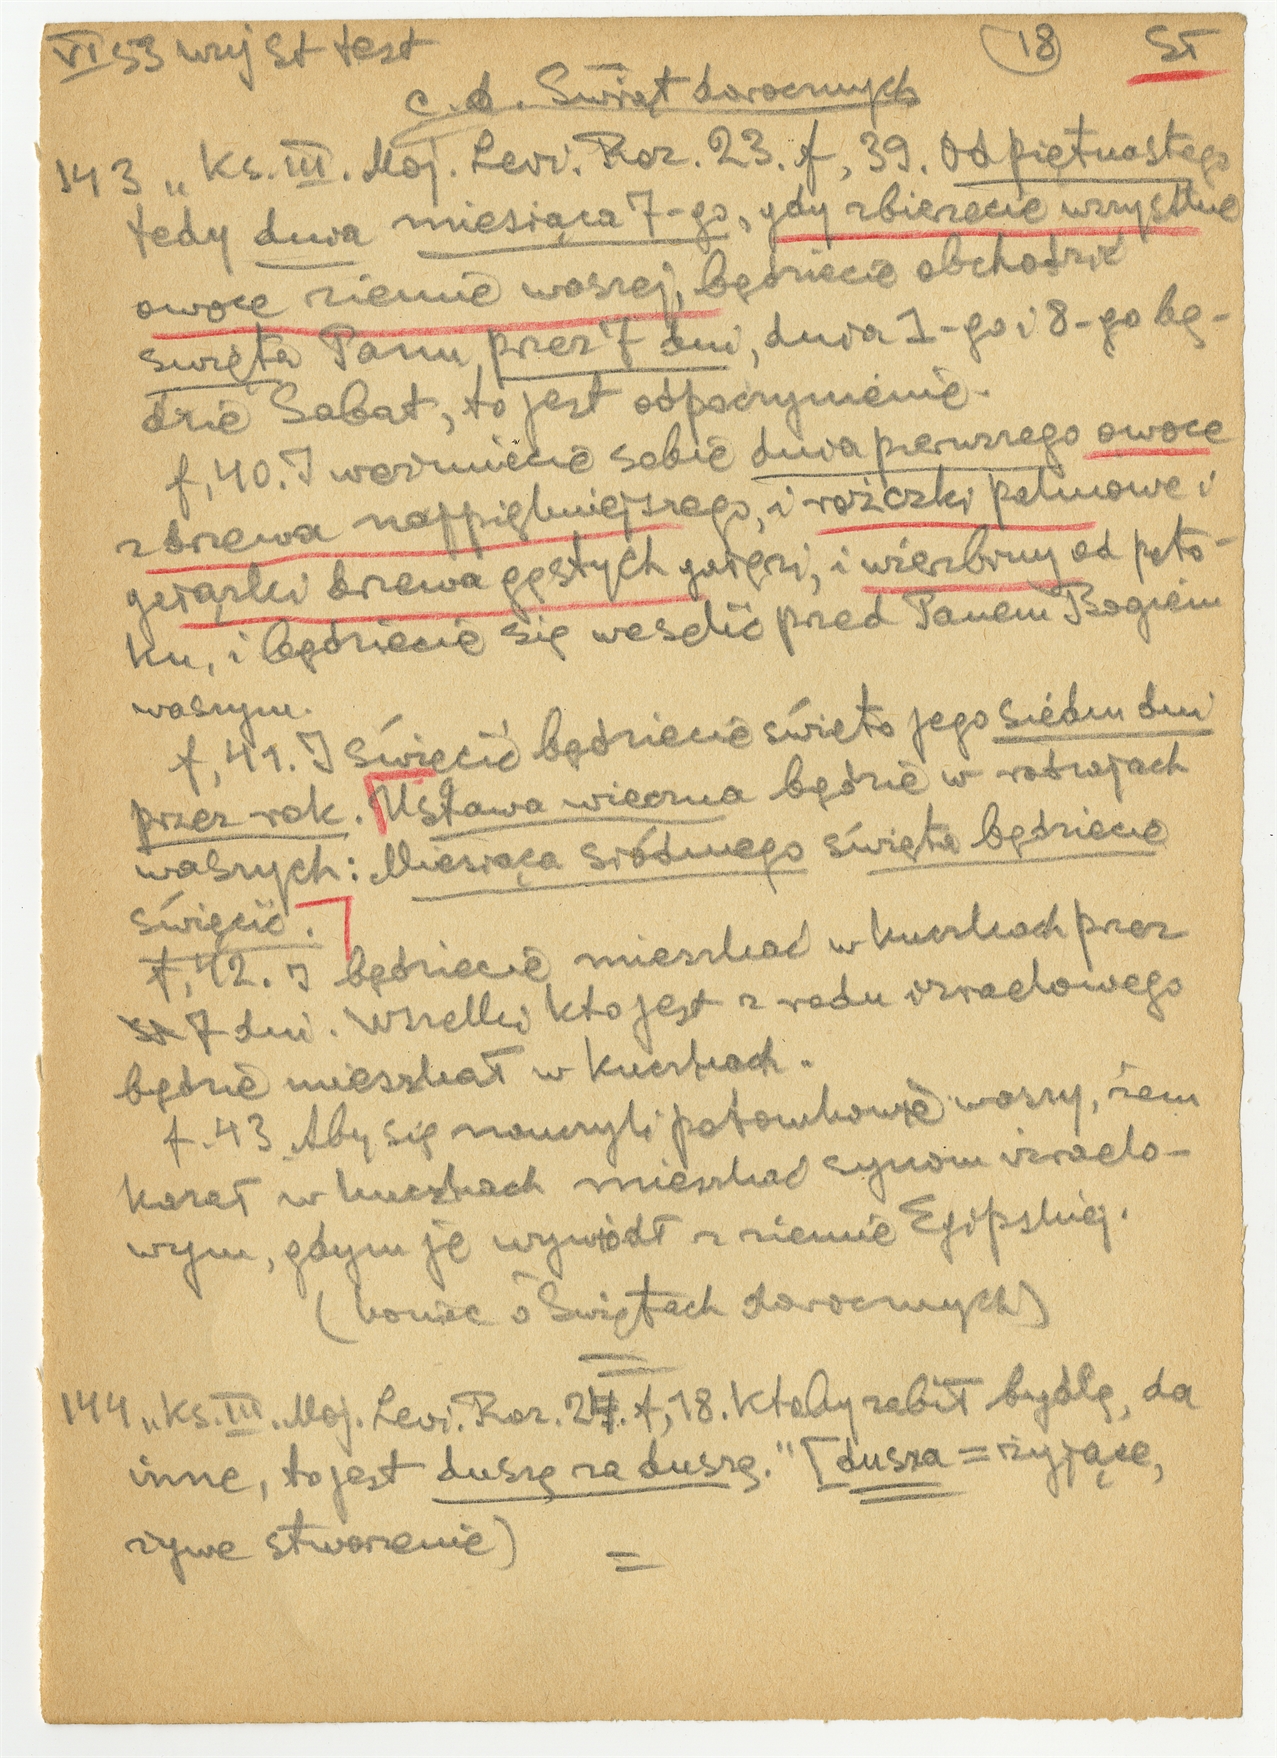 VI 53 wyj St test 18 ST
c.d. Świąt dorocznych
143 „Ks. III. Moj. Levi. Roz. 23. f, 39. Od piętnastego
tedy dnia miesiąca 7-go, gdy zbierzecie wszystkie
owoce ziemie waszej, będziecie obchodzić
święta Panu przez 7 dni, dnia 1-go i 8-go bę-
dzie Sabat, to jest odpoczynienie.
f, 40. I weźmiecie sobie dnia pierwszego owoce
z drzewa najpiękniejszego, i rożczki palmowe i
gałązki drzewa gęstych gałęzi, i wierzbiny od poto-
ku, i będziecie się weselić przed Panem Bogiem
waszym.
f, 41. I święcić będziecie święto jego siedm dni
przez rok. Ustawa wieczna będzie w rodzajach
waszych: Miesiąca siódmego święta będziecie
święcić.
f, 42. I będziecie mieszkać w kuczkach przez
7 dni. Wszelki kto jest z rodu izraelowego
będzie mieszkał w kuczkach.
f. 43. Aby się nauczyli potomkowie waszy, żem
kazał w kuczkach mieszkać synom izraelo-
wym, gdym ję wywiódł z ziemie Egipskiej.
(koniec o Świętach dorocznych)
144 „Ks. III. Moj. Levi. Roz. 24. f, 18. Ktoby zabił bydlę, da
inne, to jest duszę za duszę." [dusza = żyjące,
żywe stworzenie)